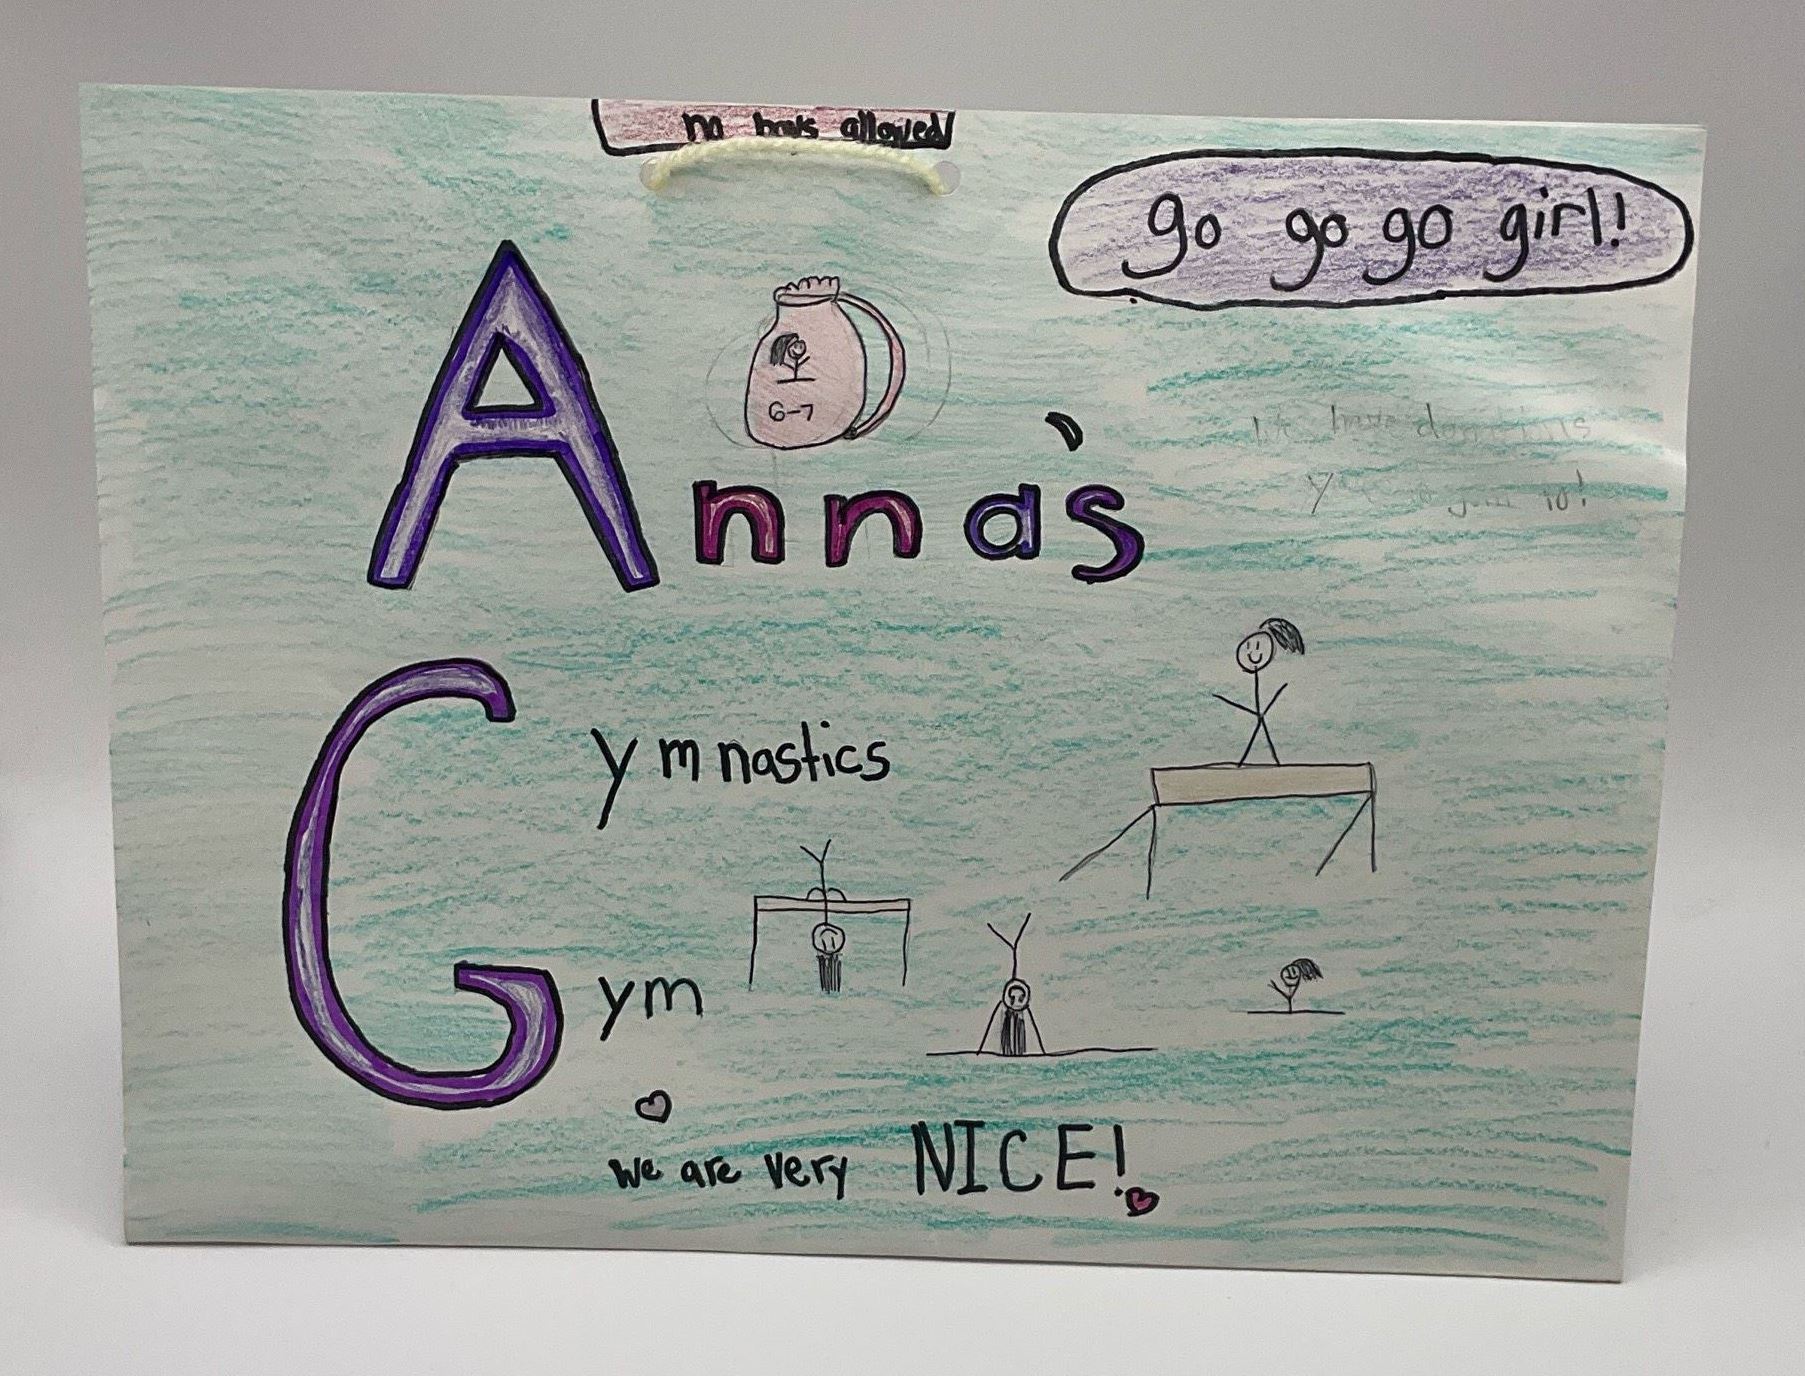 no boys allowed
go go go girl!
6-7
We have donuts
y join in!
Anna's
Gymnastics
Gym
we are very NICE!